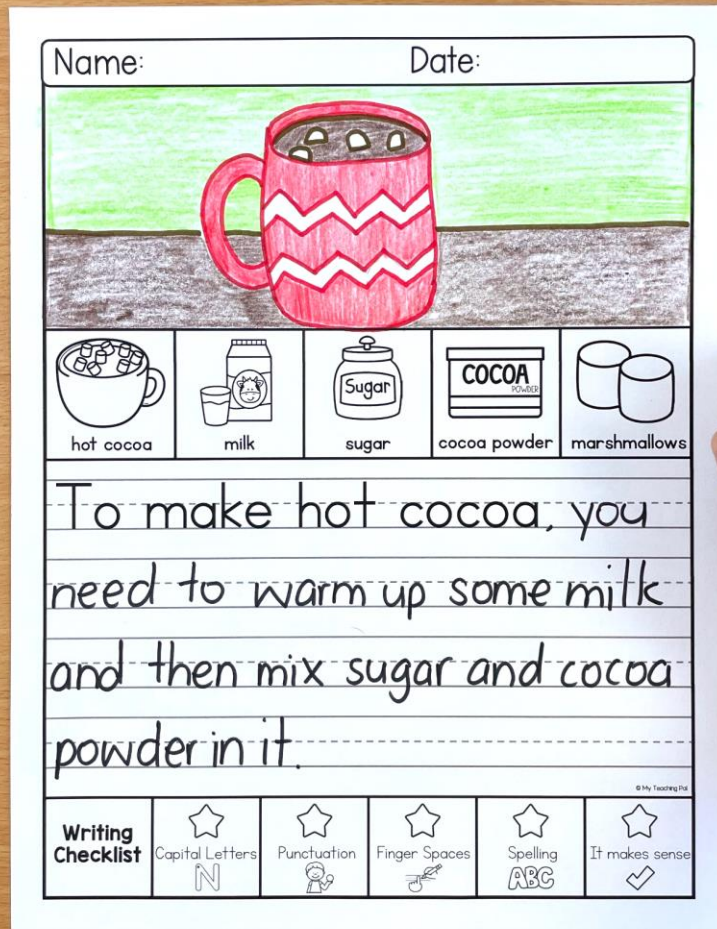 Name: Date:
hot cocoa milk Sugar sugar COCOA POWDER cocoa powder marshmallows
To make hot cocoa, you
need to warm up some milk
and then mix sugar and cocoa
powder in it.
© My Teaching Pal
Writing Checklist
Capital Letters Punctuation Finger Spaces Spelling It makes sense
N ABC